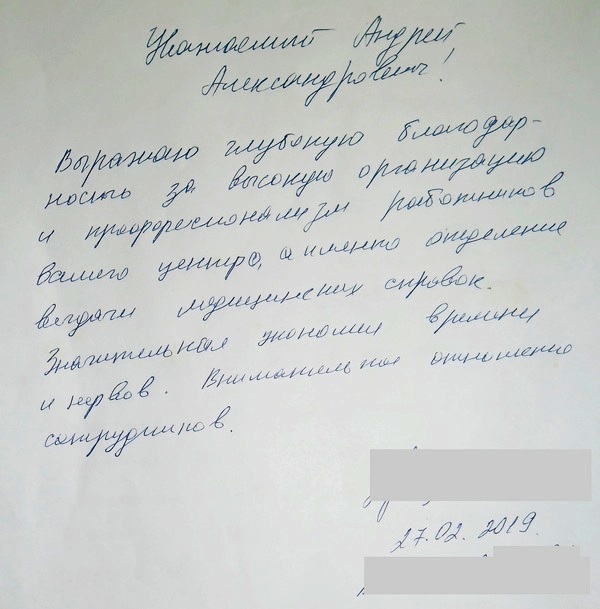 Уважаемый Андрей
Александрович!
Выражаю глубокую благодар-
ность за высокую организацию
и профресионализм работников
вашего центра, а именно отделение
выдачи медицинских справок.
Значительная экономия времени
и нервов. Внимательное отношение
сотрудников.
27.02.2019.